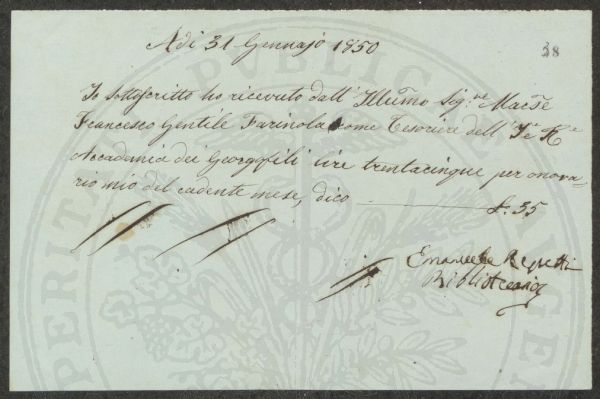 38
Adi 31 Gennajo 1850
Io sottoscritto ho ricevuto dall' Illumo Sig.re Marse
Francesco Gentile Farinola come Tesoriere dell' I.e R.e
Accademia dei Georgofili lire trentacinque per onora=
rio mio del cadente mese, dico £. 35
Emanuele Repetti
Bibliotecario
PERITATI PVBLICAE AVGEN